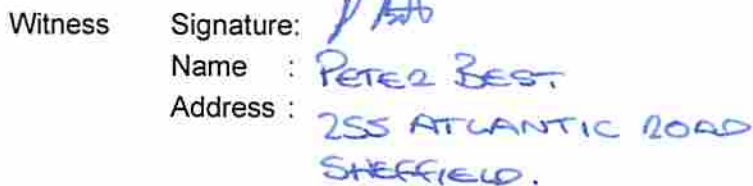 Witness Signature:
Name : PETER BEST.
Address : 255 ATLANTIC ROAD
SHEFFIELD.